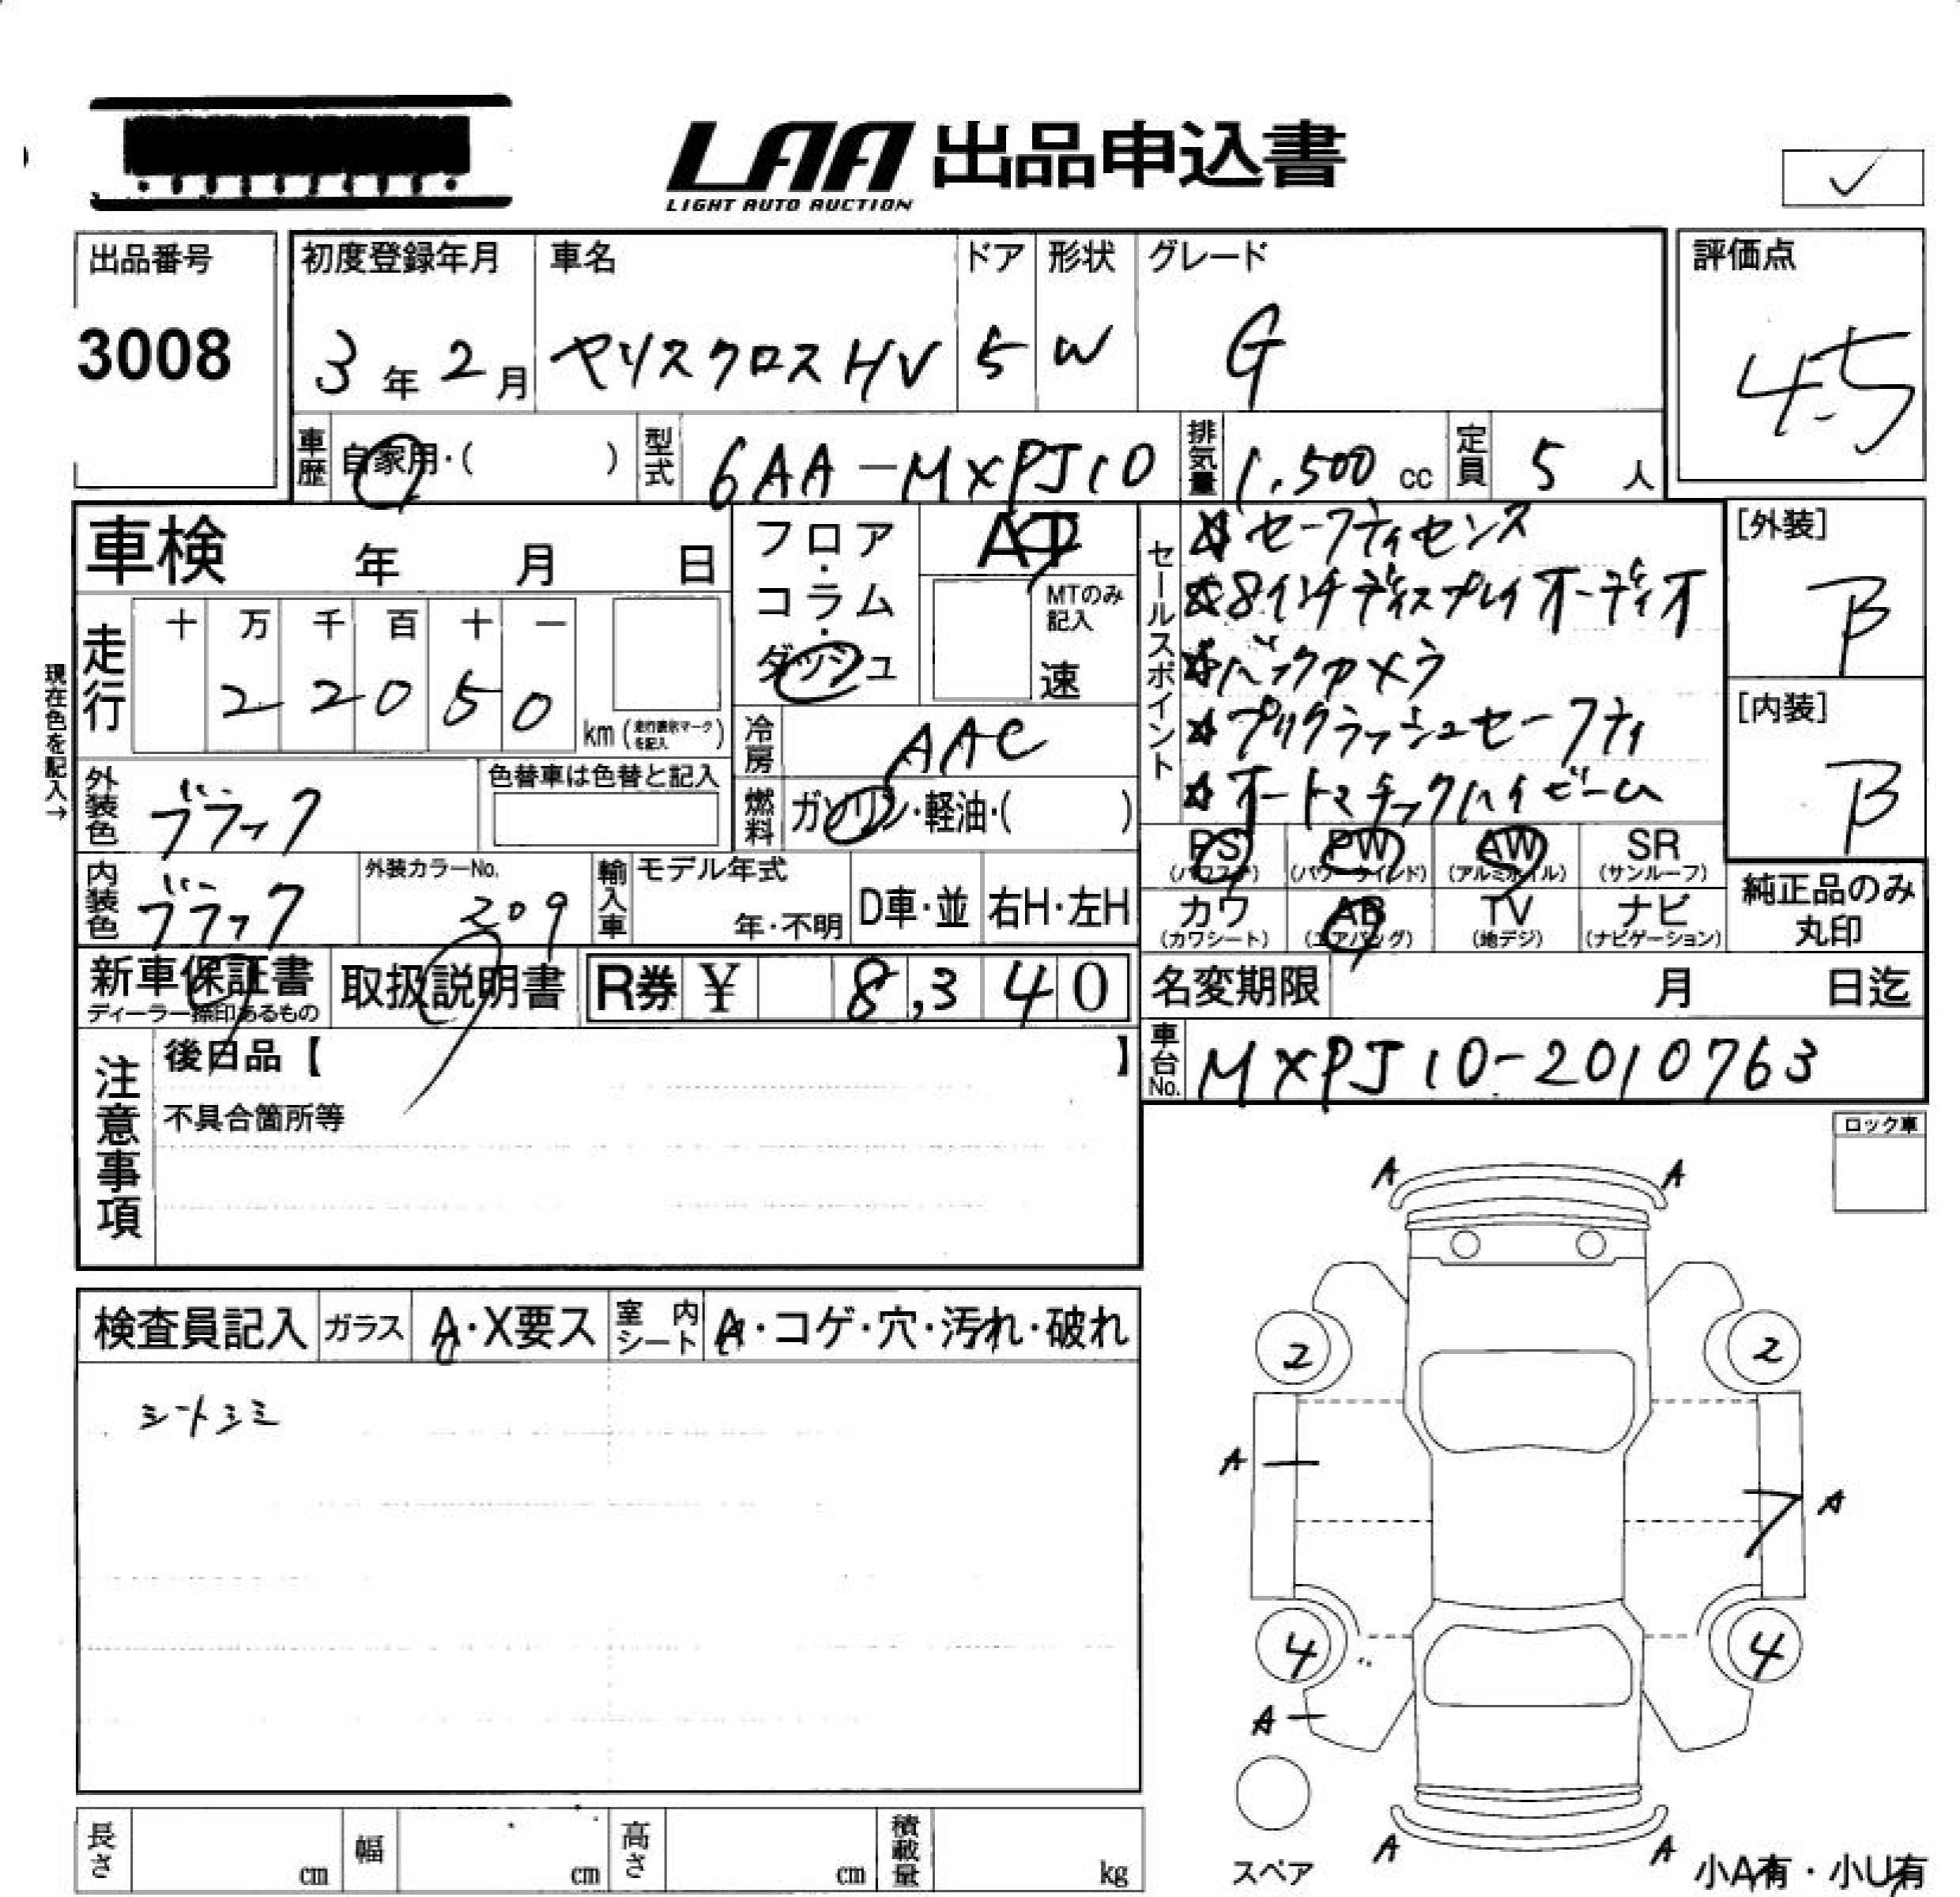 LAA 出品申込書
LIGHT AUTO AUCTION
出品番号
3008
初度登録年月
3年2月
車名
ヤリスクロスHV
ドア
5
形状
W
グレード
G
評価点
4.5
車歴
自家用・( )
型式
6AA-MXPJ10
排気量
1,500 cc
定員
5 人
車検 年 月 日
フロア・コラム・ダッシュ
AT
MTのみ記入
速
現在色を記入→
走行
十 万 千 百 十 一
2 2 0 5 0
km (走行表示マークを記入)
冷房
AAC
外装色
ブラック
色替車は色替と記入
燃料
ガソリン・軽油・( )
内装色
ブラック
外装カラーNo.
209
輸入車
モデル年式
年・不明
D車・並
右H・左H
セールスポイント
☆セーフティセンス
☆8インチディスプレイオーディオ
☆バックカメラ
☆プリクラッシュセーフティ
☆オートマチックハイビーム
[外装]
B
[内装]
B
PS (パワステ)
PW (パワーウインド)
AW (アルミホイル)
SR (サンルーフ)
カワ (カワシート)
AB (エアバッグ)
TV (地デジ)
ナビ (ナビゲーション)
純正品のみ丸印
新車保証書
ディーラー捺印あるもの
取扱説明書
R券 ¥ 8,340
名変期限 月 日迄
車台No.
MXPJ10-2010763
注意事項
後日品【 】
不具合箇所等
ロック車
検査員記入
ガラス
A・X要ス
室内シート
A・コゲ・穴・汚れ・破れ
シートシミ
A A
2 2
A
A
4 4
A
A A
スペア
小A有・小U有
長さ cm
幅 cm
高さ cm
積載量 kg